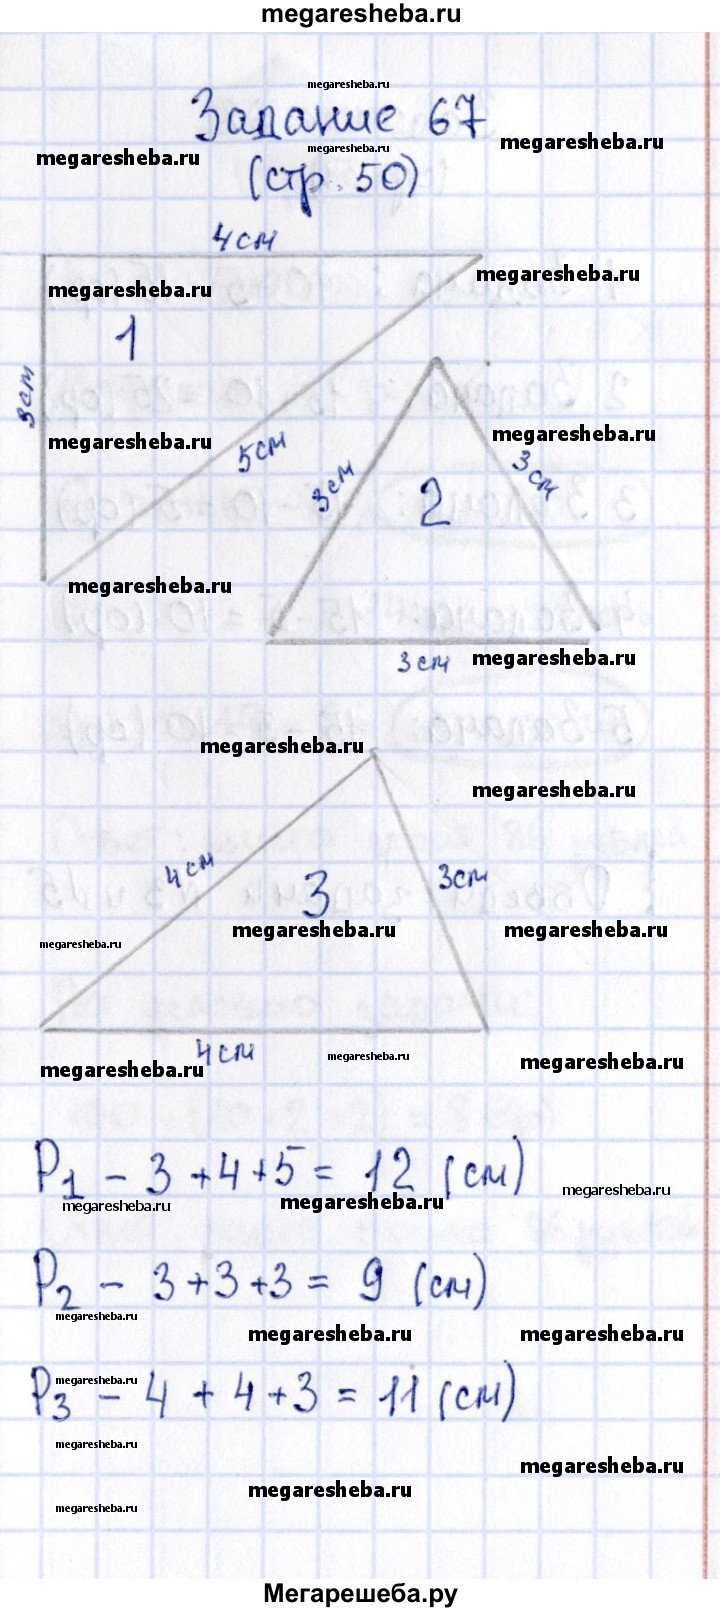 megaresheba.ru
megaresheba.ru
Задание 67
megaresheba.ru
megaresheba.ru
megaresheba.ru
(стр. 50)
4см
megaresheba.ru
megaresheba.ru
1
3см
megaresheba.ru
megaresheba.ru
5см
3см
3см
2
megaresheba.ru
3см
megaresheba.ru
megaresheba.ru
megaresheba.ru
4см
3см
3
megaresheba.ru
megaresheba.ru
megaresheba.ru
4см
megaresheba.ru
megaresheba.ru
megaresheba.ru
P1 - 3+4+5= 12 (см)
megaresheba.ru
megaresheba.ru
megaresheba.ru
P2 - 3+3+3= 9 (см)
megaresheba.ru
megaresheba.ru
megaresheba.ru
megaresheba.ru
P3 - 4 + 4+3 = 11 (см)
megaresheba.ru
megaresheba.ru
megaresheba.ru
megaresheba.ru
Мегарешеба.ру